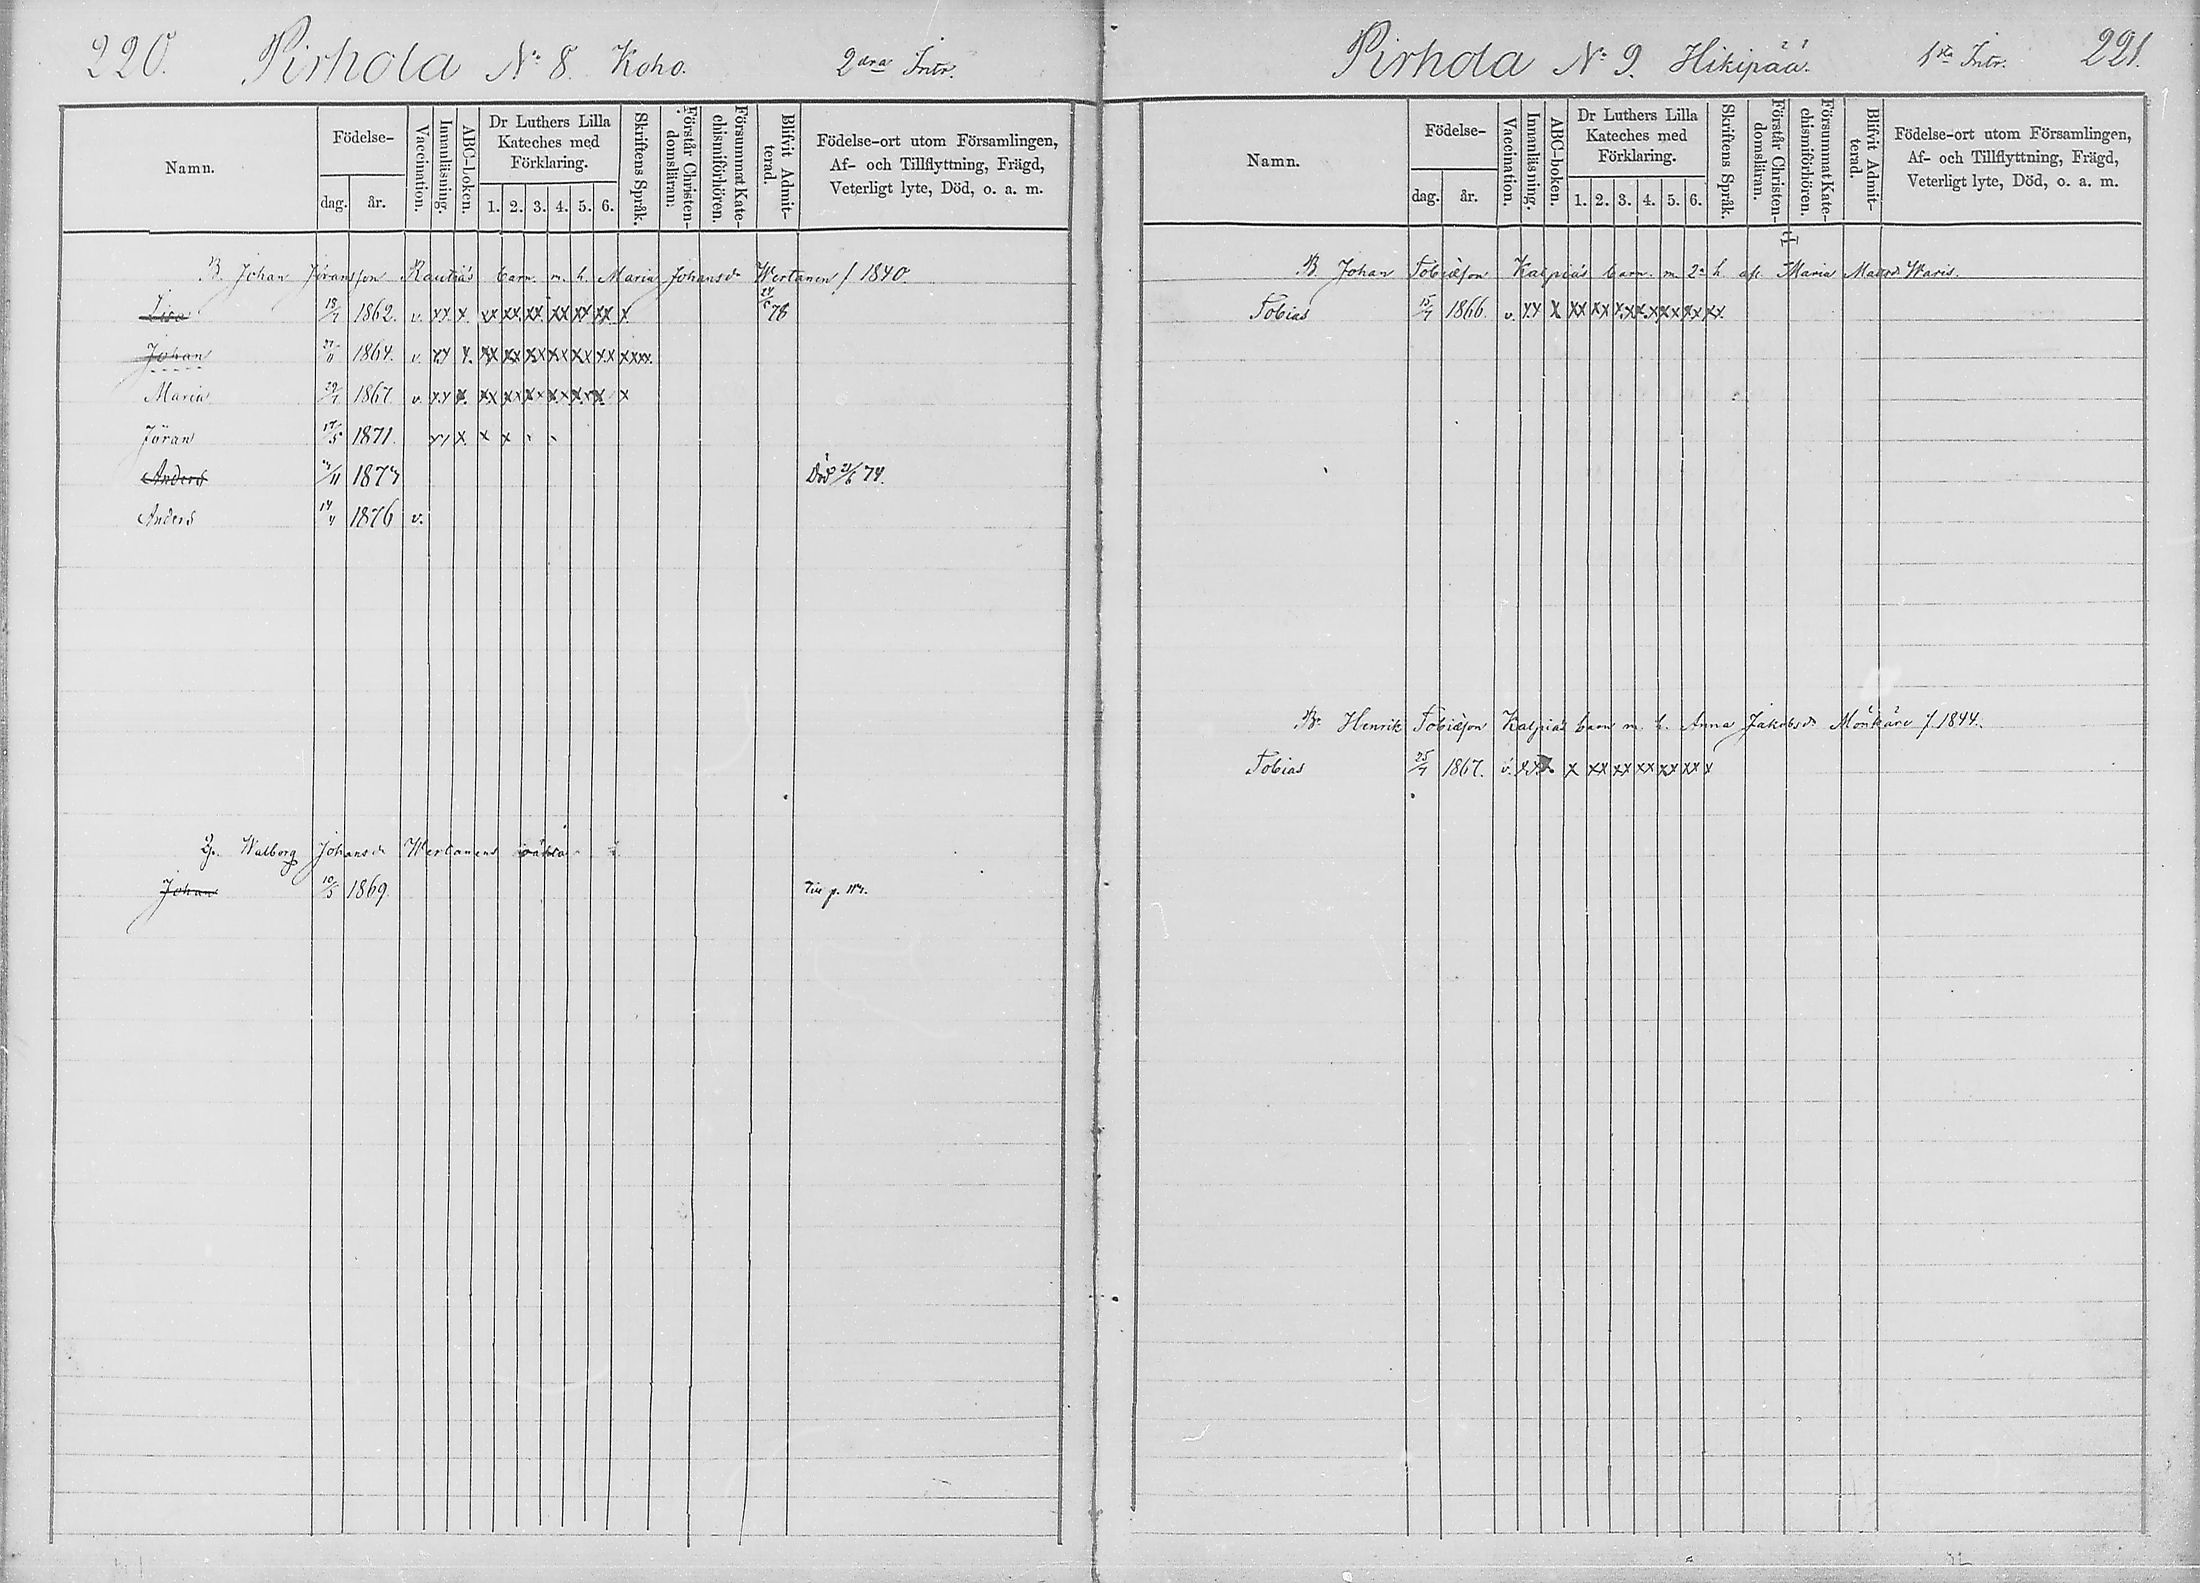 220. Pirhola N:o 8. Koho. 2dra Intr.
Namn. Födelse- dag. år. Vaccination. Innanläsning. ABC-boken. Dr Luthers Lilla Kateches med Förklaring. 1. 2. 3. 4. 5. 6. Skriftens Språk. Förstår Christendomsläran. Försummat Katechismiförhören. Blifvit Admitterad. Födelse-ort utom Församlingen, Af- och Tillflyttning, Frägd, Veterligt lyte, Död, o. a. m.
B. Johan Jöransson Rautias barn m. h. Maria Johansdr Wertanen f 1840.
Lisa 18/7 1862. v. xx x. xx xx xx xx xx xx x 24/6 78
Johan 27/11 1864. v. xx x. xx xx xx xx xx xx xxxx
Maria 29/7 1867 v. xx x. xx xx xx xx xx x x
Jöran 17/5 1871. x x x x
Anders 1873 Död 21/6 74.
Anders 14/4 1876 v.
Walborg Johansdr Wertanens
Johan 10/5 1869.
Pirhola N:o 9. Hikipää. 1sta Intr. 221.
Namn. Födelse- dag. år. Vaccination. Innanläsning. ABC-boken. Dr Luthers Lilla Kateches med Förklaring. 1. 2. 3. 4. 5. 6. Skriftens Språk. Förstår Christendomsläran. Försummat Katechismiförhören. Blifvit Admitterad. Födelse-ort utom Församlingen, Af- och Tillflyttning, Frägd, Veterligt lyte, Död, o. a. m.
B. Johan Tobiæson Kalpias barn m 2a h. afl. Maria Matsdr Waris.
Tobias 15/7 1866. v. xx x xx xx xx xx xx xx xx
Br Henrik Tobiæson Kalpias barn m. h. Anna Jakobsdr Mönkäre f. 1844.
Tobias 25/7 1867. v. xx x x xx xx xx xx xx x